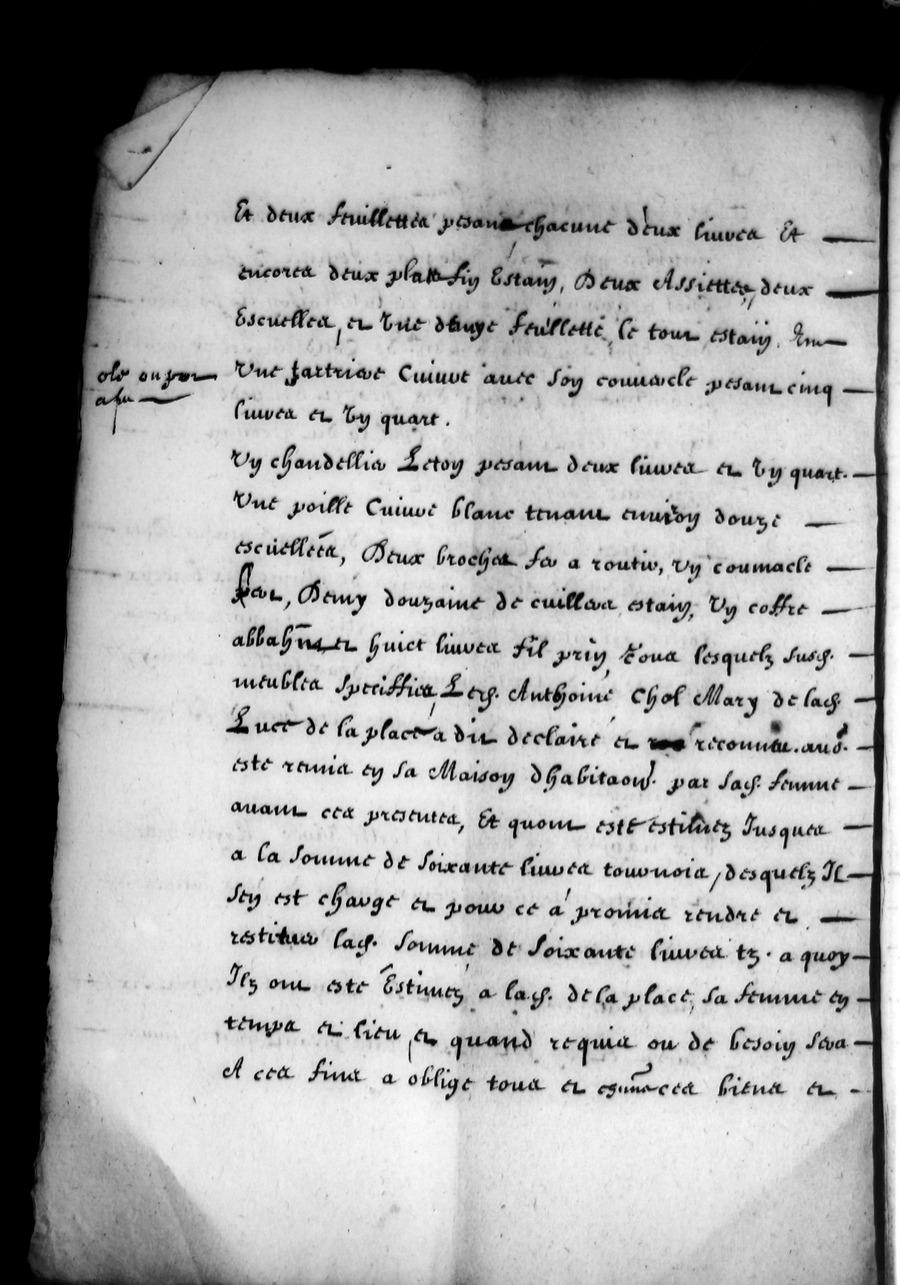 Et deux feuillettes pesant chacune deux livres Et
encores deux platz fin Estain, Deux Assiettes, deux
Escuelles, et Une demye feullette, le tout estain.
Une tartriere Cuivre avec son couvercle pesant cinq
livres et Un quart.
Un chandellier Leton pesant deux livres et Un quart.
Une poille Cuivre blanc tenant environ douze
escuellées, Deux broches fer a routir, un coumacle
fer, Demy douzaine de cuilleres estain, Un coffre
et huict livres fil prin, Tous lesquelz susd.
meubles speciffies, Led. Anthoine Chol Mary de lad.
Luce de la place a dit declairé et reconneu avoir
esté remis en sa Maison dhabitaon par sad. femme
avant ces presentes, Et quont esté estimez Jusques
a la somme de soixante livres tournois, desquelz Il
sen est chargé et pour ce a promis rendre et
restituer lad. somme de soixante livres tz. a quoy
Ilz ont esté Estimez a lad. de la place, sa femme en
temps et lieu, et quand requis ou de besoin sera
A ces fins a obligé tous et ces biens et